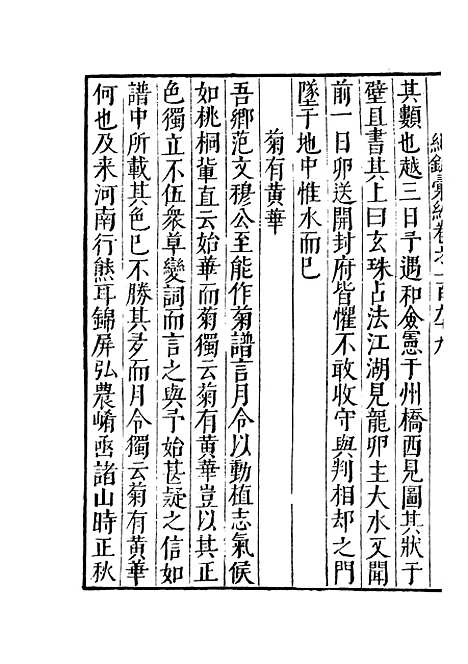 紀錄彙編卷之一百九十九
其類也越三日予遇和僉憲于州橋西見圖其狀于
壁且書其上曰玄珠占法江湖見龍卵主大水又聞
前一日卵送開封府皆懼不敢收守與判相却之門
墜于地中惟水而已
菊有黄華
吾鄉范文穆公至能作菊譜言月令以動植志氣候
如桃桐軰直云始華而菊獨云菊有黄華豈以其正
色獨立不伍衆草變詞而言之與予始甚疑之信如
譜中所載其色已不勝其多而月令獨云菊有黄華
何也及来河南行熊耳錦屏弘農崤凾諸山時正秋